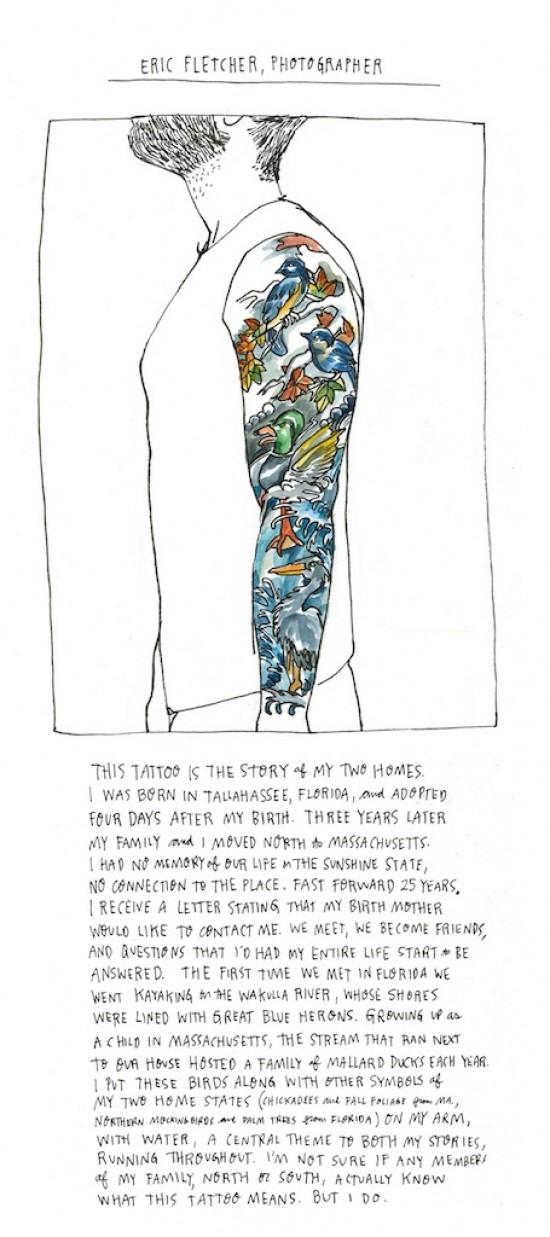 ERIC FLETCHER, PHOTOGRAPHER
THIS TATTOO IS THE STORY of MY TWO HOMES.
I WAS BORN IN TALLAHASSEE, FLORIDA, and ADOPTED
FOUR DAYS AFTER MY BIRTH. THREE YEARS LATER
MY FAMILY and I MOVED NORTH to MASSACHUSETTS.
I HAD NO MEMORY of OUR LIFE in THE SUNSHINE STATE,
NO CONNECTION to THE PLACE. FAST FORWARD 25 YEARS,
I RECEIVE A LETTER STATING THAT MY BIRTH MOTHER
WOULD LIKE TO CONTACT ME. WE MEET, WE BECOME FRIENDS,
AND QUESTIONS THAT I'D HAD MY ENTIRE LIFE START to BE
ANSWERED. THE FIRST TIME WE MET IN FLORIDA WE
WENT KAYAKING on THE WAKULLA RIVER, WHOSE SHORES
WERE LINED WITH GREAT BLUE HERONS. GROWING UP as
A CHILD IN MASSACHUSETTS, THE STREAM THAT RAN NEXT
TO OUR HOUSE HOSTED A FAMILY of MALLARD DUCKS EACH YEAR.
I PUT THESE BIRDS ALONG WITH OTHER SYMBOLS of
MY TWO HOME STATES (CHICKADEES and FALL FOLIAGE from MA.,
NORTHERN MOCKINGBIRDS and PALM TREES from FLORIDA) ON MY ARM,
WITH WATER, A CENTRAL THEME TO BOTH MY STORIES,
RUNNING THROUGHOUT. I'M NOT SURE IF ANY MEMBERS
of MY FAMILY, NORTH or SOUTH, ACTUALLY KNOW
WHAT THIS TATTOO MEANS. BUT I DO.